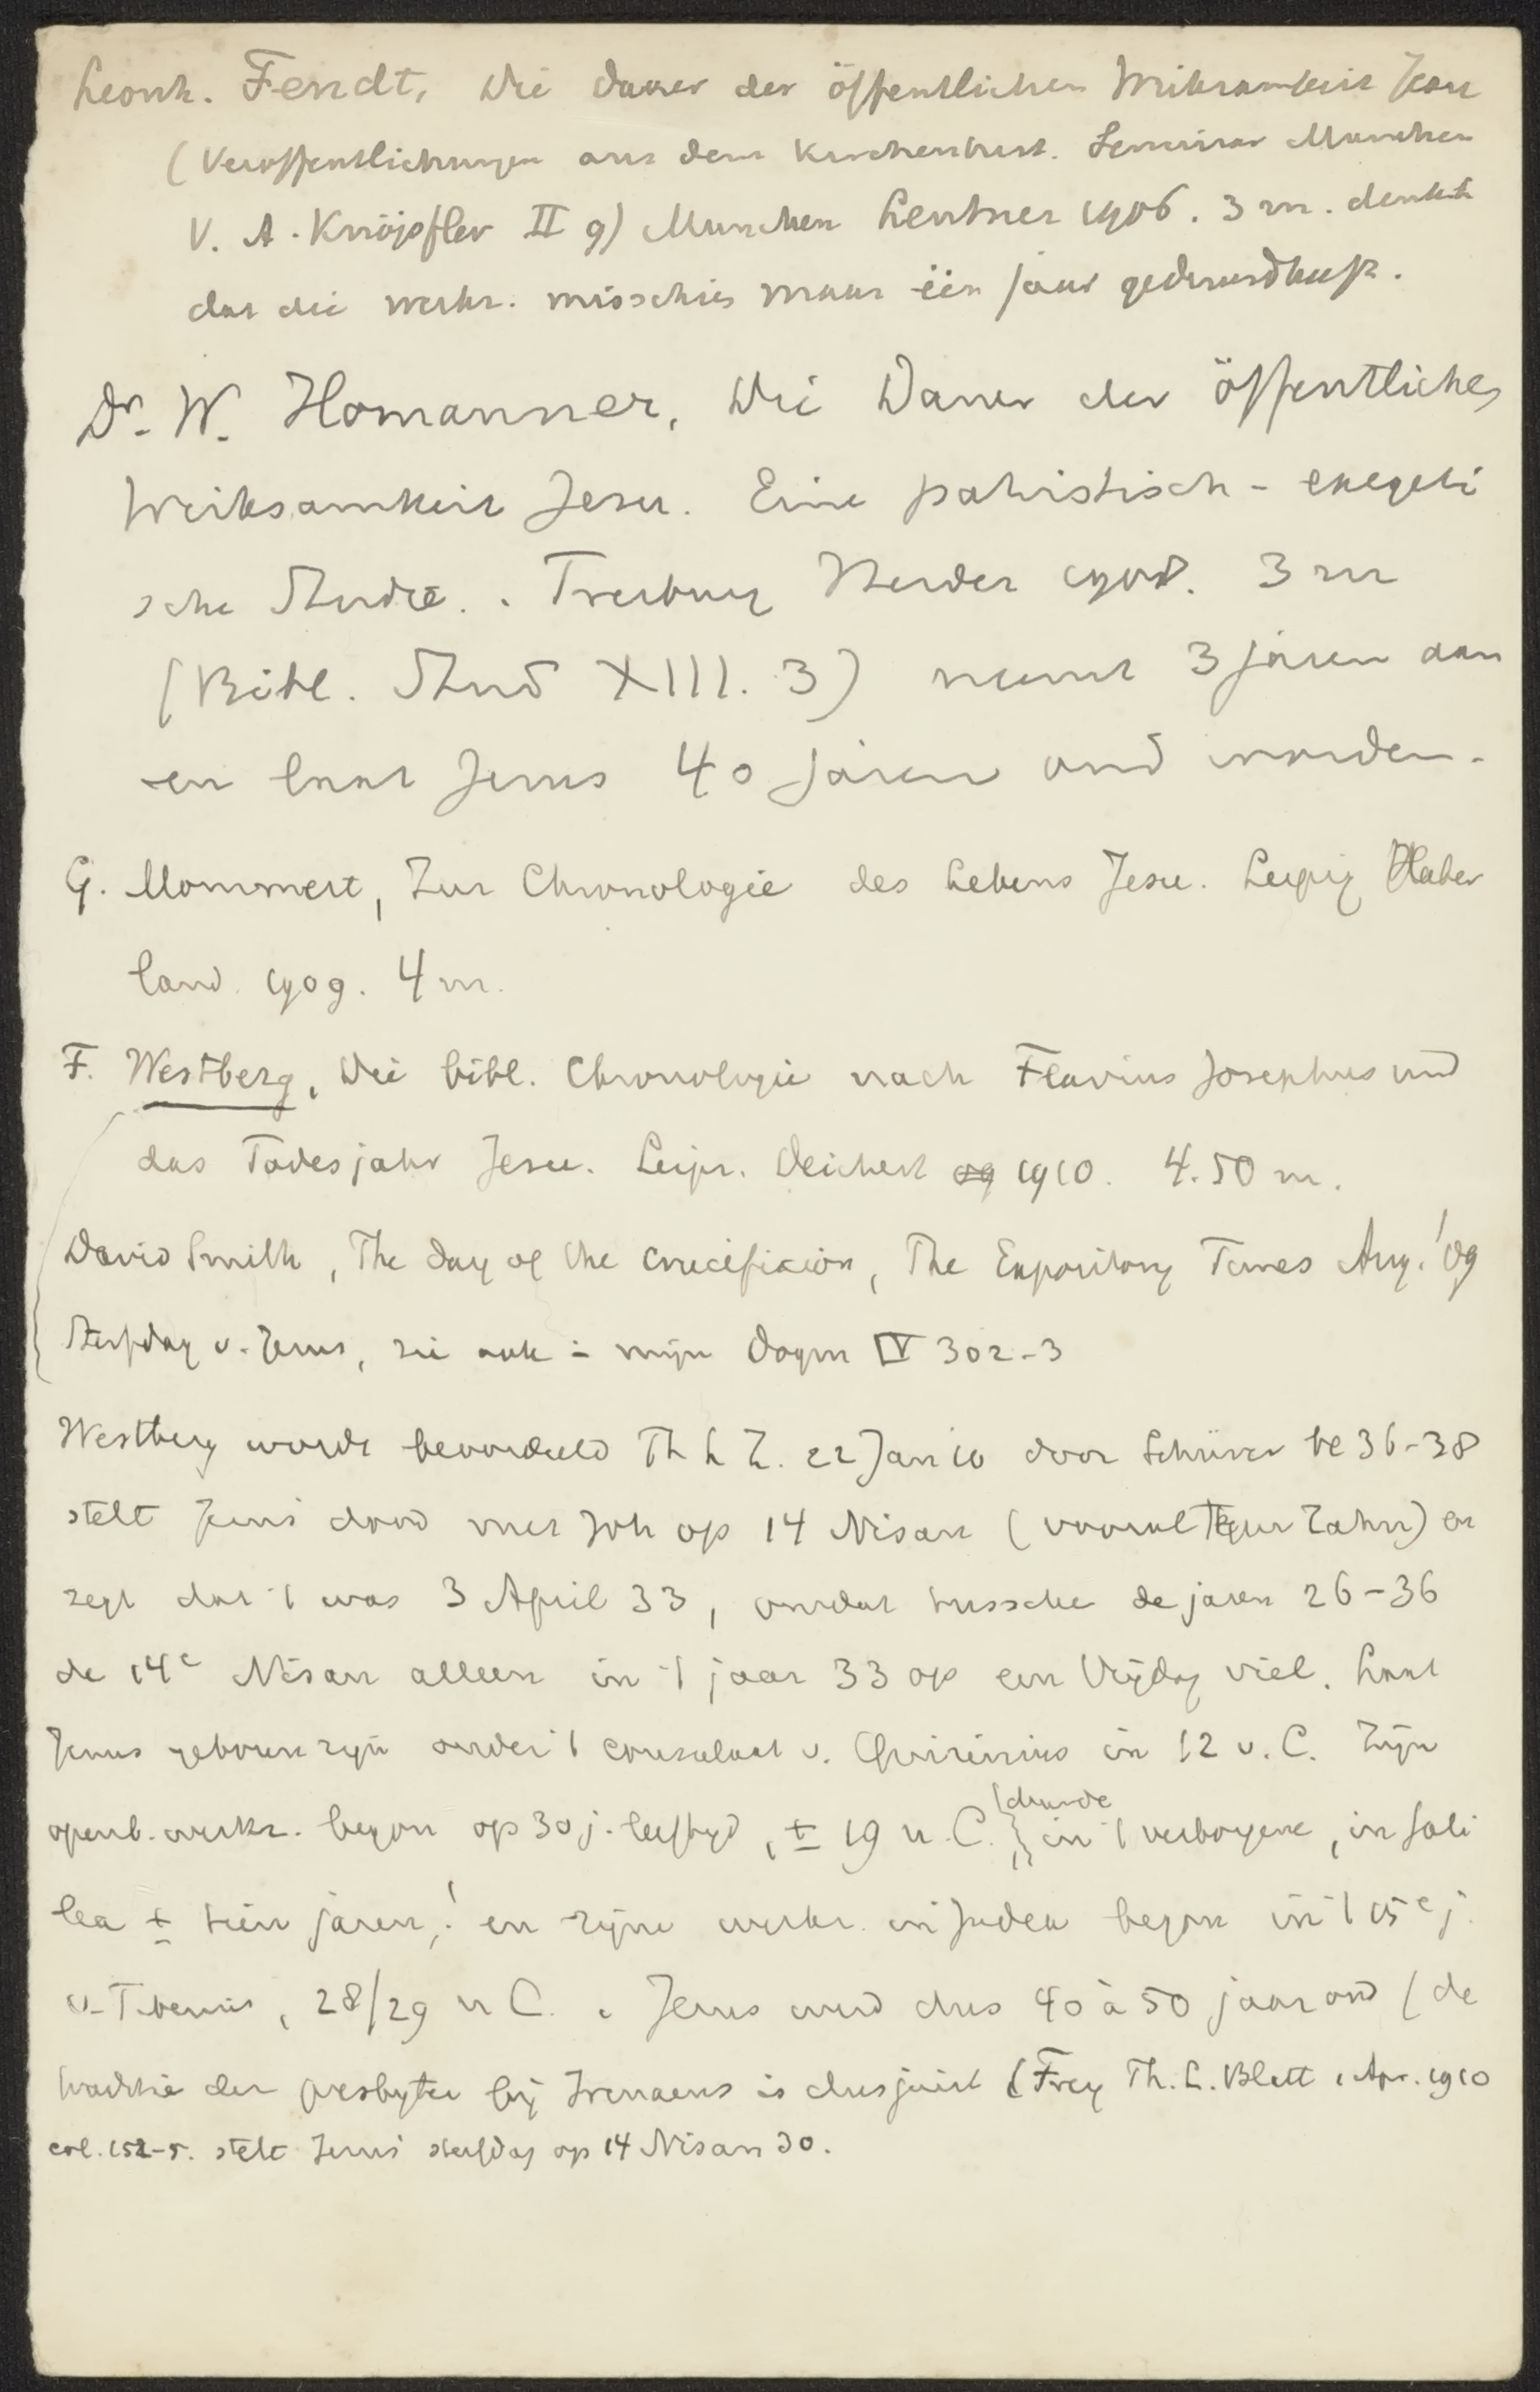 Leonh. Fendt, Die Dauer der öffentlichen Wirksamkeit Jesu
(Veroffentlichungen aus dem Kirchenhist. Seminar Munchen
V. A. Knöpfler II 9) Munchen Lentner 1906. 3 m. denkt
dat die werkz. misschien maar één jaar geduurd heeft.
Dr. W. Homanner, Die Dauer der öffentlichen
Wirksamkeit Jesu. Eine patristisch-exegeti
sche Studie. Freiburg Herder 1908. 3 m
(Bibl. Stud XIII. 3) neemt 3 jaren aan
en laat Jezus 40 jaren oud worden.
G. Mommert, Zur Chronologie des Lebens Jesu. Leipzig Haber
land 1909. 4 m.
F. Westberg, Die bibl. Chronologie nach Flavius Josephus und
das Todesjahr Jesu. Leipz. Deichert 1910. 4.50 m.
David Smith, The day of the crucifixion, The Expository Times Aug. '09
Sterfdag v. Jezus, zie ook in mijn Dogm IV 302-3
Westberg wordt beoordeeld Th L Z. 22 Jan 10 door Schürer
stelt Jezus' dood met Joh op 14 Nisan (vooral tegen Zahn) en
zegt dat 't was 3 April 33, omdat tussche de jaren 26-36
de 14e Nisan alleen in 't jaar 33 op een Vrijdag viel. Laat
Jezus geboren zijn onder 't consulaat v. Quirinius in 12 v. C. Zijn
openb. werkz. begon op 30 j. leeftijd, ± 19 n. C. {duurde} in 't verborgene, in Gali
lea ± tien jaren,! en zijne werkz. in Judea begon in 't 15e j.
v. Tiberius, 28/29 n C. Jezus werd dus 40 à 50 jaar oud (de
traditie der presbyter bij Irenaeus is dus juist (Frey Th. L. Blatt 1 Apr. 1910
col. 152-5. stelt Jezus' sterfdag op 14 Nisan 30.